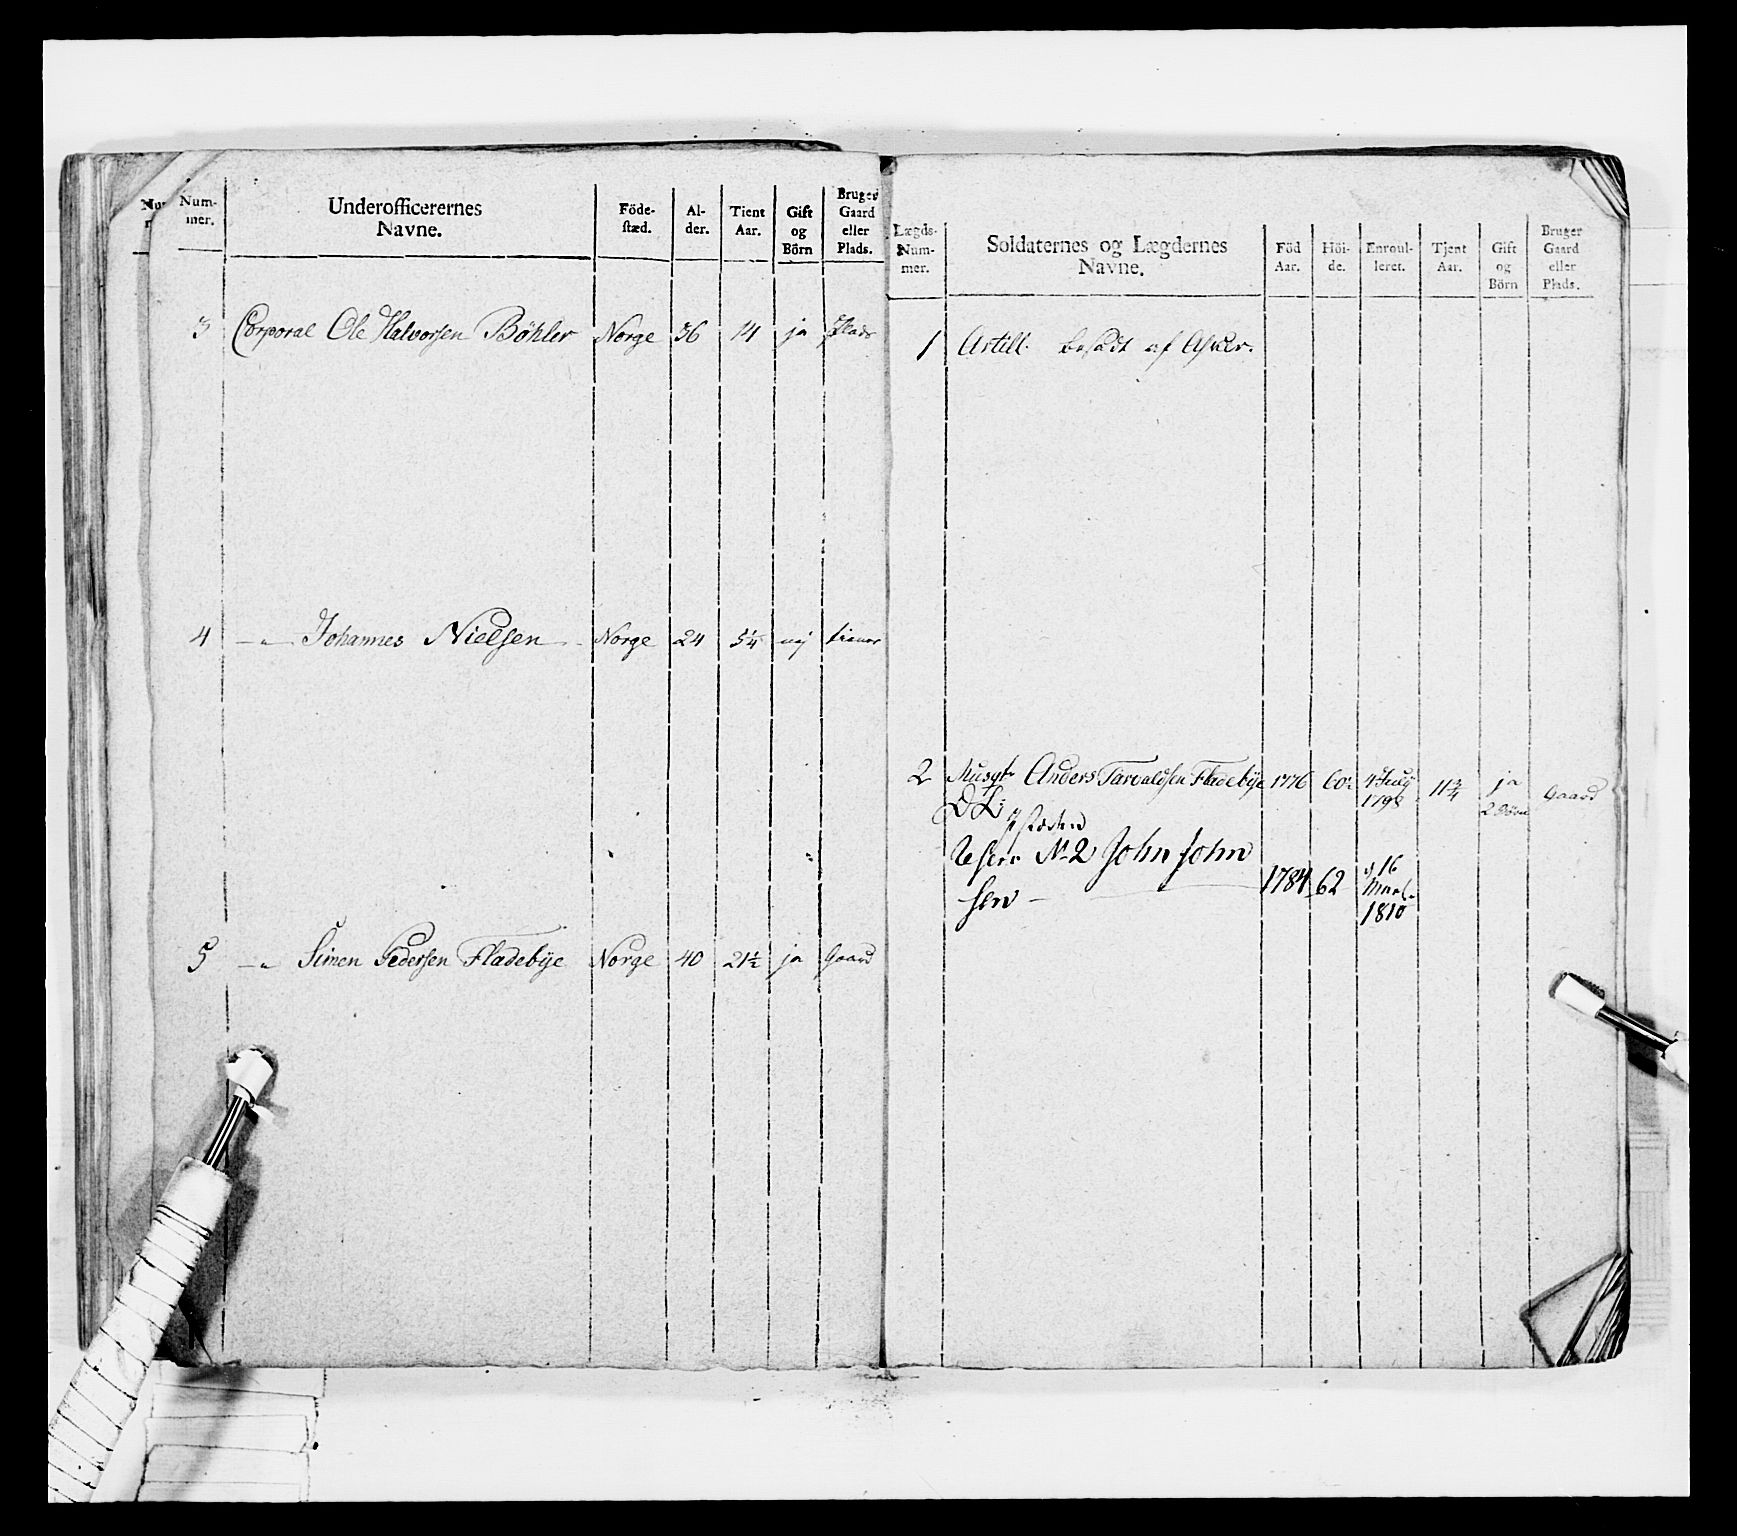 Num-
mer.
Underofficerernes
Navne.
Föde-
stæd.
Al-
der.
Tient
Aar.
Gift
og
Börn
Bruger
Gaard
eller
Plads.
3 Corporal Ole Halvorsen Böhler Norge 36 14 ja Plads
4 —„— Johannes Nielsen Norge 24 5¼ nej tiener
5 —„ Simen Pedersen Fladebÿe Norge 40 21½ ja Gaard
Lægds-
Num-
mer.
Soldaternes og Lægdernes
Navne.
Föd
Aar.
Höi-
de.
Enroul-
leret.
Tjent
Aar.
Gift
og
Börn
Bruger
Gaard
eller
Plads.
1 Artill. besadt af
2 Musqt. Anders Tarvaldsen Fladebÿe 1776 60: 4 July 1798 11¾ ja 2 Börn Gaard
D L:
No 2 John John
sen — 1784 62 d 16
1810